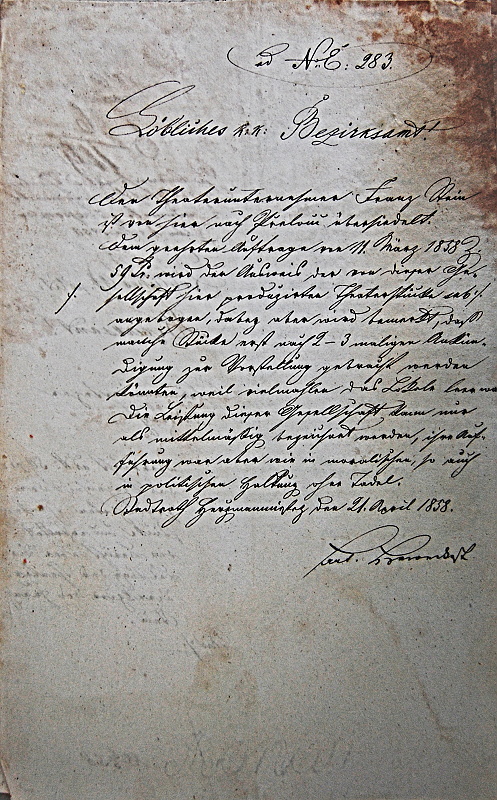 ad N. E: 283.
Löbliches k. k: Bezirksamt!
Der Theaterunternehmer Franz Stein
ist von hier nach Přelouč übersiedelt.
Dem geehrten Auftrage von 11. März 1858 Z
59 Pr. wird der Ausweis der von dieser Ge-
sellschaft hier produzirten Theaterstücke sub ./.
./.
angebogen, dabey aber wird bemerkt, daß
manche Stücke erst nach 2-3 maligen Ankün-
digung zur Vorstellung gebracht werden
konnten, weil vielmahlen das Lokale leer war
Die Leistung dieser Gesellschaft kann nur
als mittelmäßig bezeichnet werden, ihre Auf-
führung war aber wie in moralischer, so auch
in politischer Haltung ohne Tadel.
Stadtrath Herzmanmiestez den 21. April 1858.